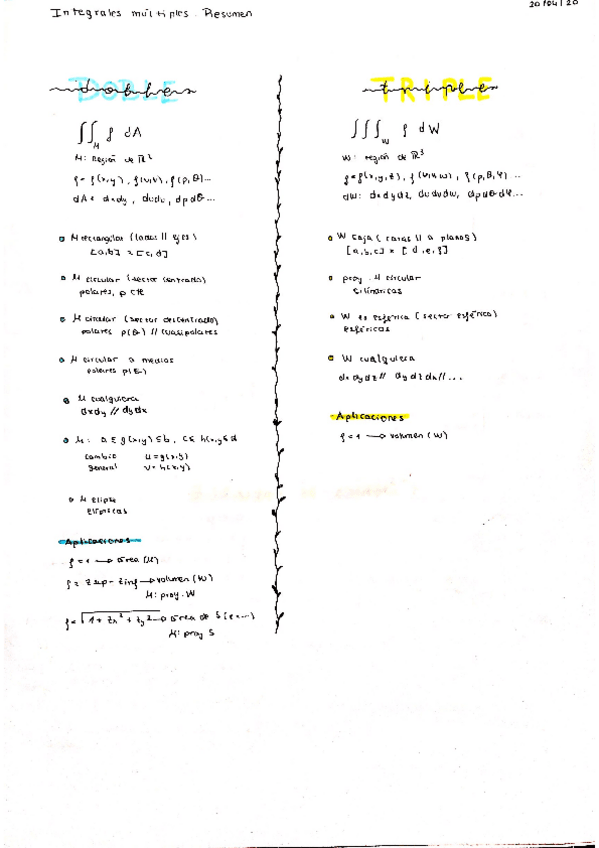 Integrales múltiples. Resumen
20/04/20
DOBLE
dobles
∬_M f dA
M: Región de ℝ²
f = f(x,y), f(u,v), f(ρ,θ)...
dA = dxdy, dudv, dρdθ...
M rectangular (lados // ejes)
[a,b] × [c,d]
M circular (sector centrado)
polares, ρ cte
M circular (sector descentrado)
polares ρ(θ) // cuasipolares
M circular a medias
polares ρ(θ)
M cualquiera
dxdy // dydx
M: a ≤ g(x,y) ≤ b, c ≤ h(x,y) ≤ d
cambio u = g(x,y)
general v = h(x,y)
M elipse
elípticas
Aplicaciones
f = 1 → área (M)
f = zsup - zinf → volumen (W)
M: proy. W
f = √1 + zx² + zy² → área de S
M: proy S
TRIPLE
triples
∭_W f dW
W: región de ℝ³
f = f(x,y,z), f(u,v,w), f(ρ,θ,φ)...
dW: dxdydz, dudvdw, dρdθdφ...
W caja (caras // a planos)
[a,b,c] × [d,e,f]
proy. M circular
cilíndricas
W es esférica (sector esférico)
esféricas
W cualquiera
dxdydz // dydzdx // ...
Aplicaciones
f = 1 → volumen (W)